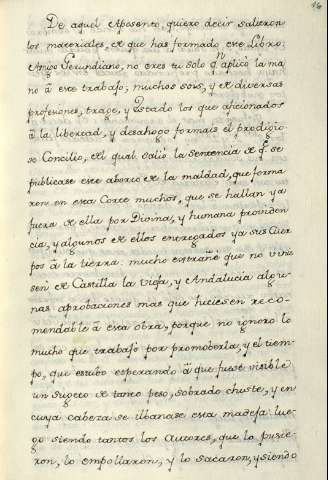 16
De aquel Aposento, quiero decir salieron
los materiales, de que has formado ese Libro:
Amigo Gerundiano, no eres tu solo qn. aplicò la ma
no â este trabajo; muchos sois, y de diversas
profesiones, trage, y Estado los que aficionados
â la libertad, y desahogo formais el prodigio
so Concilio, del qual saliò la sentencia de qe. se
publicase este aborto de la maldad, que forma
ron en esta Corte muchos, que se hallan ya
fuera de ella por Divina, y humana providen
cia, y algunos de ellos entregados ya sus Cuer
pos â la tierra: mucho estrañè que no vinie
sen de Castilla la Vieja, y Andalucia algu
nas aprobaciones mas que hiciesen reco
mendable â esta obra, porque no ignoro lo
mucho que trabajo por promoberla, y el tiem
po, que estubo esperando â que fuese visible
un Sugeto de tanto peso, sobrado chiste, y en
cuya cabeza se debanase esta madeja: lue
go siendo tantos los Autores, que lo pusie
ron, lo empollaron, y lo sacaron, y siendo